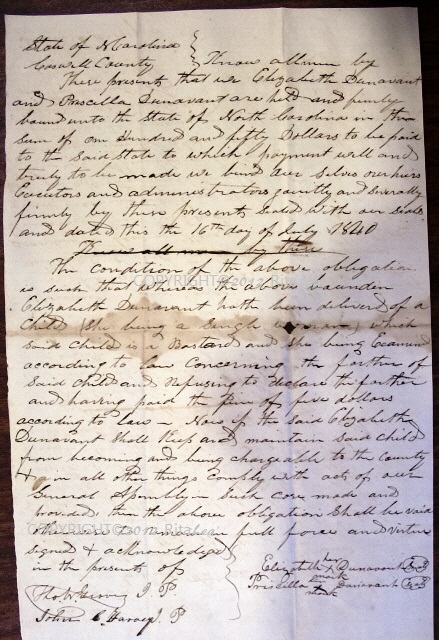 State of N Carolina
Caswell County } Know all men by
These presents that we Elizabeth Dunavant
and Priscilla Dunavant are held and firmly
bound unto the State of North Carolina in the
Sum of one Hundred and fifty Dollars to be paid
to the Said State to which payment well and
truly to be made we bind our selves our heirs
Executors and administrators jointly and severally
firmly by these presents Sealed with our seals
and dated this the 16th day of July 1840
Know all men by these
The Condition of the above obligation
is such that whereas the above
Elizabeth Dunavant hath been delivered of a
Child (She being a Single woman) which
Said Child is a Bastard and She being Examined
according to law Concerning the farther of
Said Child and Refusing to declare the farther
and having paid the fine of five dollars
according to law - Now if the Said Elizabeth
Dunavant Shall Keep and maintain Said Child
from becoming and being chargeable to the County
& in all other things Comply with acts of our
General Assembly in Such Case made and
provided then the above obligation Shall be void
otherwise to remain in full force and virtue
signed & acknowledged
in the presents of
Elizabeth her mark Dunavant
Priscilla her mark Dunavant
J. P.
John C. Harvey J. P
COPYRIGHT©2012
COPYRIGHT©2012